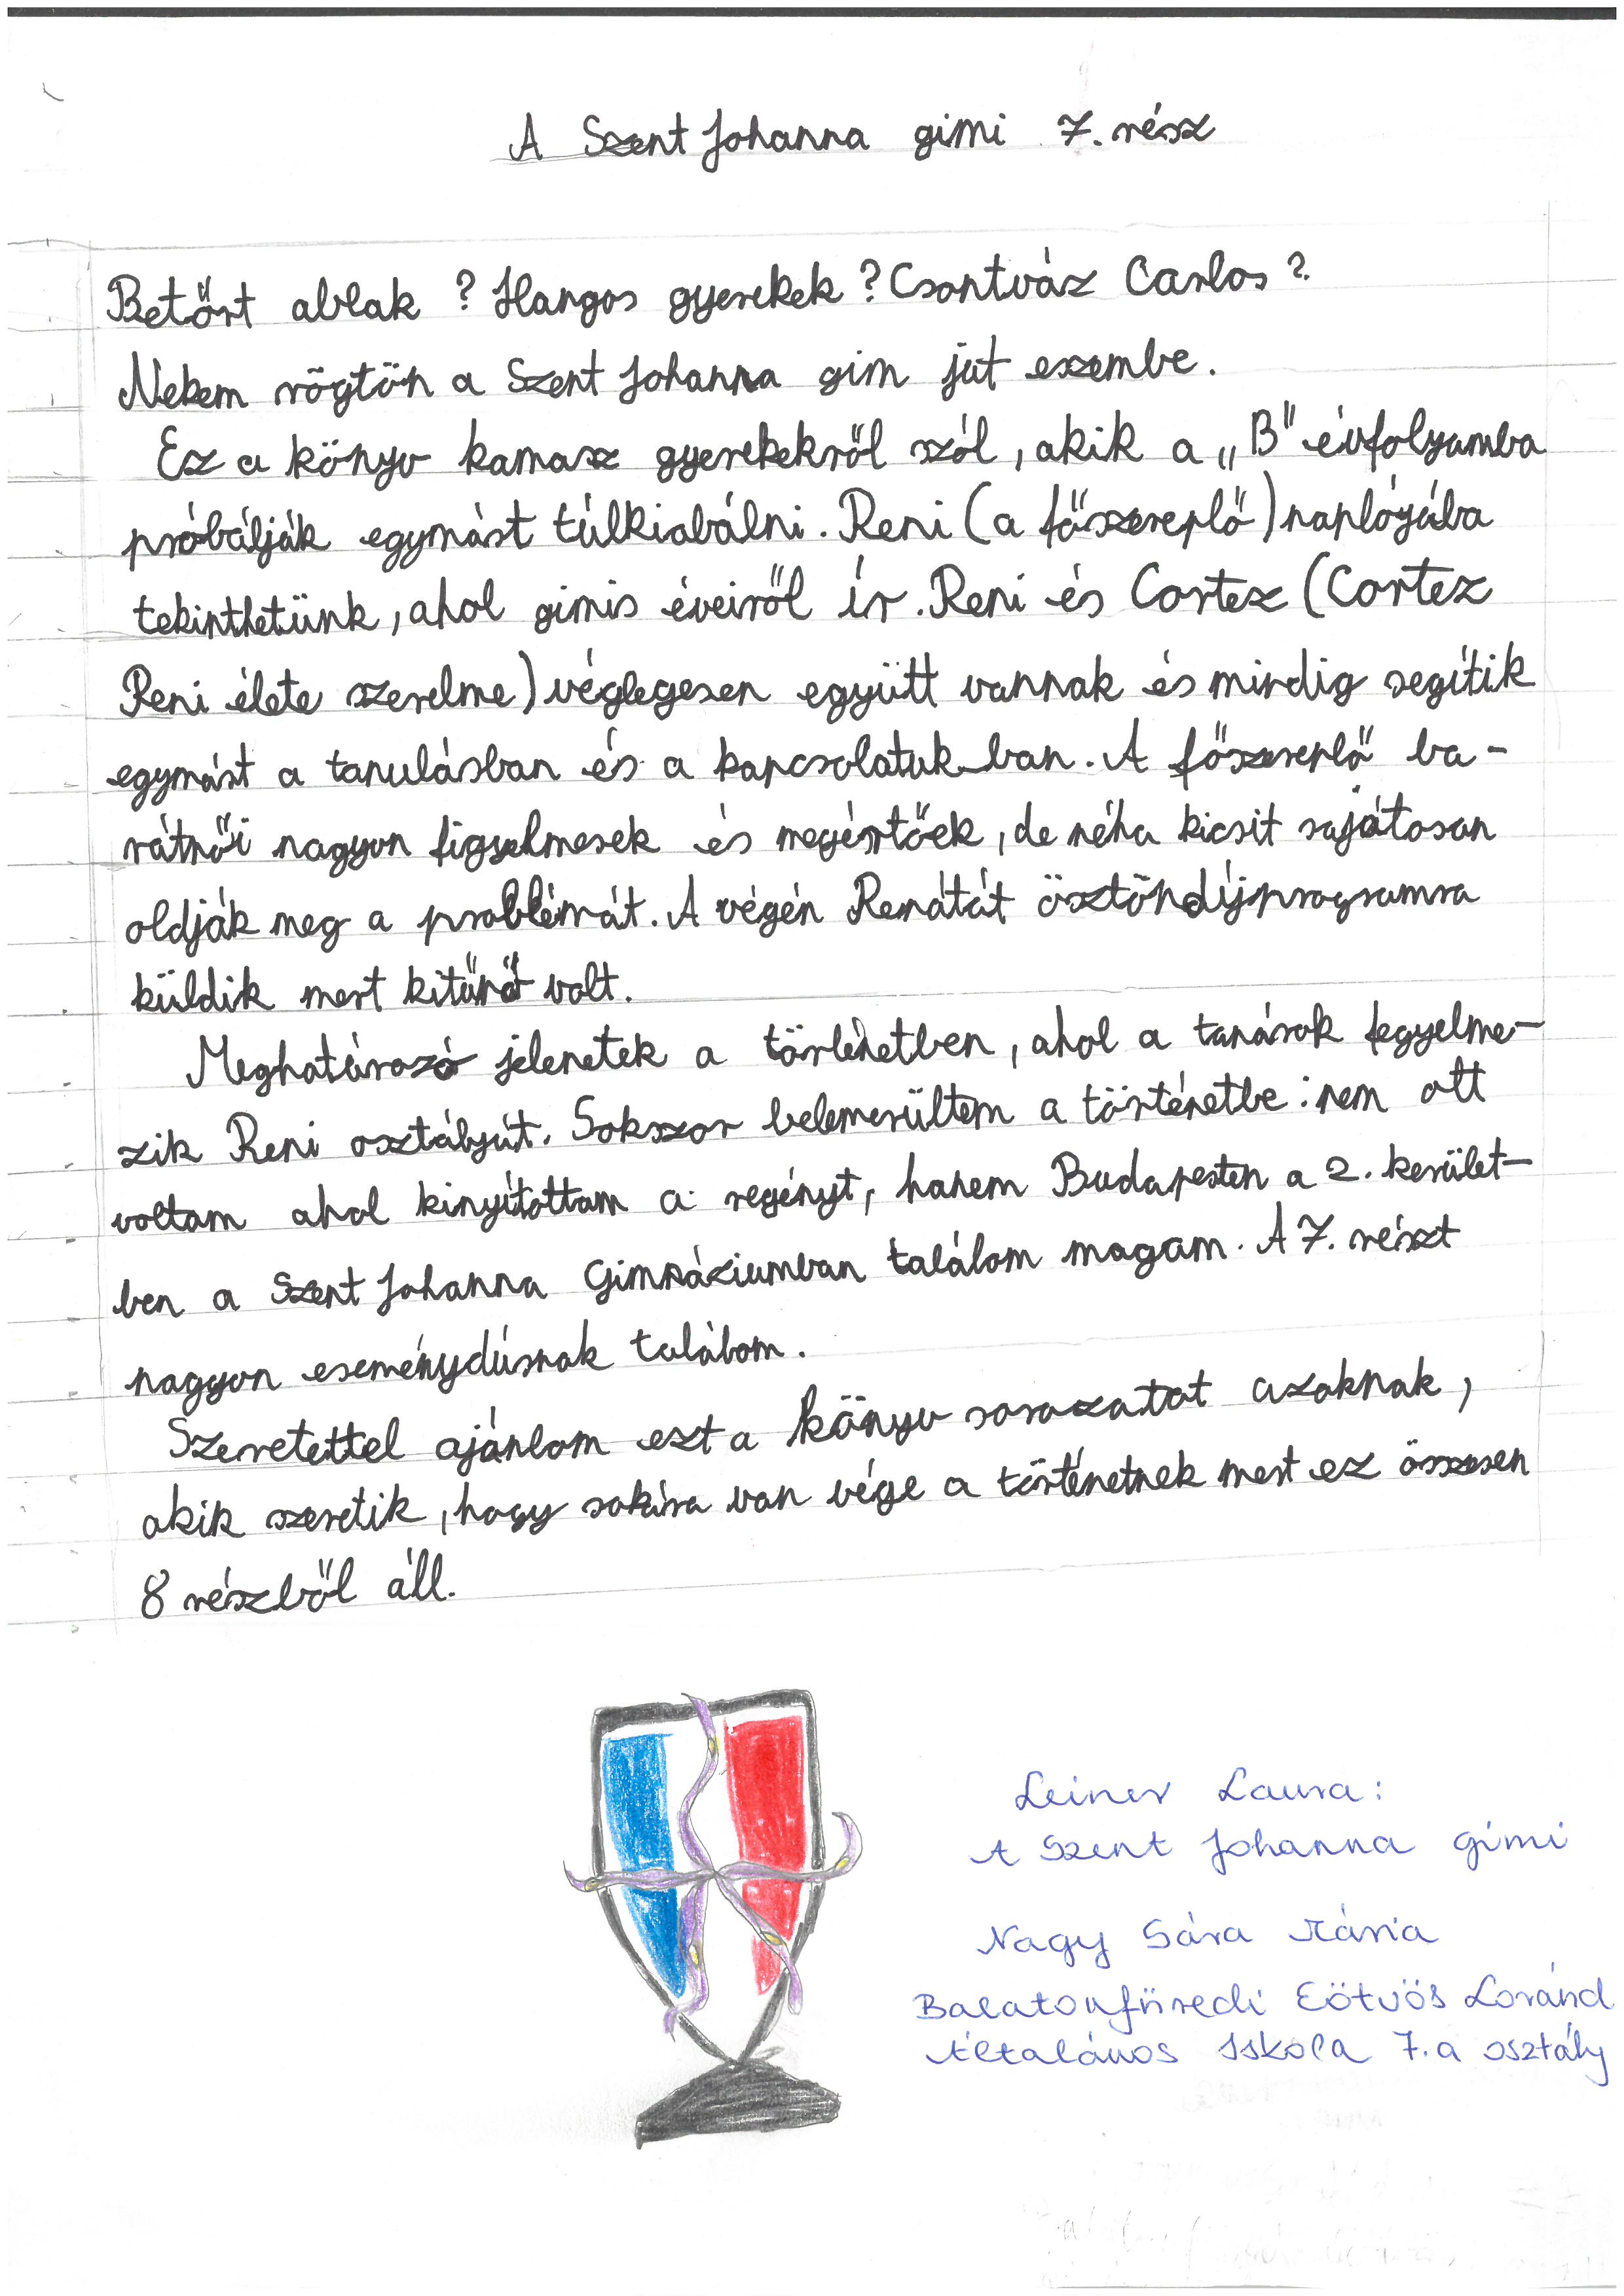 A Szent Johanna gimi 7. rész
Betört ablak? Hangos gyerekek? Csontváz Carlos?
Nekem rögtön a Szent Johanna gim jut eszembe.
Ez a könyv kamasz gyerekekről szól, akik a „B" évfolyamba
próbálják egymást túlkiabálni. Reni (a főszereplő) naplójába
tekinthetünk, ahol gimis éveiről ír. Reni és Cortez (Cortez
Reni élete szerelme) véglegesen együtt vannak és mindig segítik
egymást a tanulásban és a kapcsolatuk-ban. A főszereplő ba-
rátnői nagyon figyelmesek és megértőek, de néha kicsit sajátosan
oldják meg a problémát. A végén Renátát ösztöndíjprogramra
küldik mert kitűnő volt.
Meghatározó jelenetek a történetben, ahol a tanárok fegyelme-
zik Reni osztályát. Sokszor belemerültem a történetbe: nem ott
voltam ahol kinyitottam a regényt, hanem Budapesten a 2. kerület-
ben a Szent Johanna Gimnáziumban találom magam. A 7. részt
nagyon eseménydúsnak találom.
Szeretettel ajánlom ezt a könyv sorozatot azoknak,
akik szeretik, hogy sokára van vége a történetnek mert ez összesen
8 részből áll.
Leiner Laura:
A Szent Johanna gimi
Nagy Sára Mária
Balatonfüredi Eötvös Loránd
Általános Iskola 7.a osztály